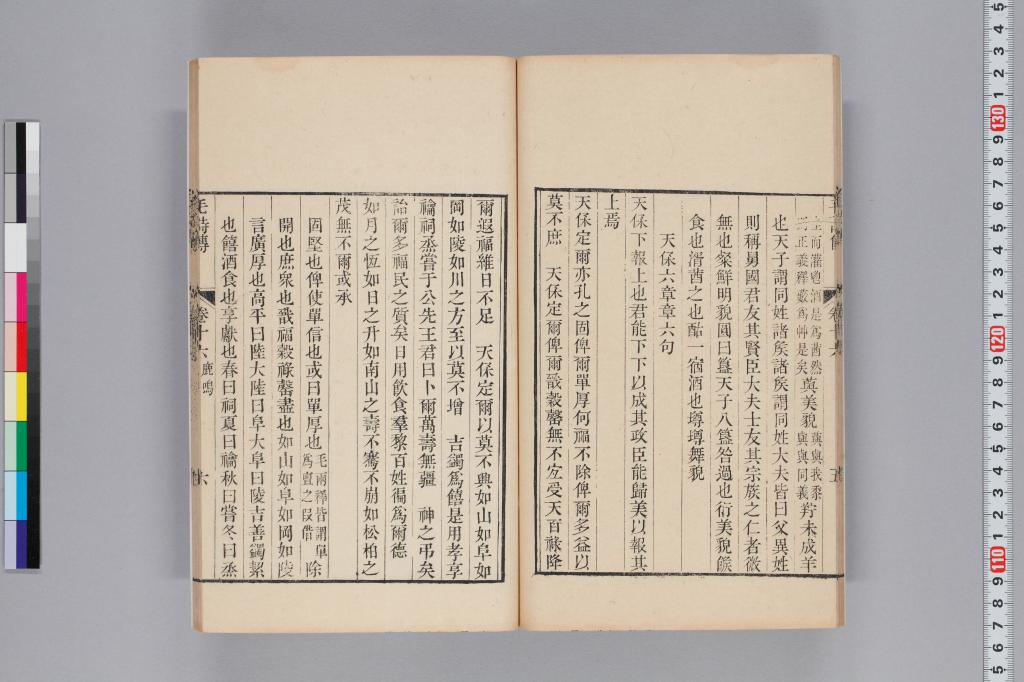 土而灌鬯酒是爲莤然
疏正義釋藇爲艸是矣藇美貌藇與我黍與與同義羜未成羊
也天子謂同姓諸矦諸矦謂同姓大夫皆曰父異姓
則稱舅國君友其賢臣大夫士友其宗族之仁者微
無也粲鮮明貌圓曰簋天子八簋咎過也衍美貌餱
食也湑莤之也酤一宿酒也墫墫舞貌
天保六章章六句
天保下報上也君能下下以成其政臣能歸美以報其
上焉
天保定爾亦孔之固俾爾單厚何福不除俾爾多益以
莫不庶 天保定爾俾爾戩穀罄無不宐受天百祿降
爾遐福維日不足 天保定爾以莫不興如山如阜如
岡如陵如川之方至以莫不增 吉蠲爲饎是用孝享
禴祠烝嘗于公先王君曰卜爾萬壽無疆 神之弔矣
詒爾多福民之質矣日用飲食羣黎百姓徧爲爾德
如月之恆如日之升如南山之壽不騫不崩如松柏之
茂無不爾或承
固堅也俾使單信也或曰單厚也毛兩釋皆謂單
爲亶之叚借除
開也庶衆也戩福穀祿罄盡也如山如阜如岡如陵
言廣厚也高平曰陸大陸曰阜大阜曰陵吉善蠲絜
也饎酒食也享獻也春曰祠夏曰禴秋曰嘗冬曰烝
毛詩傳
卷十六
鹿鳴
六